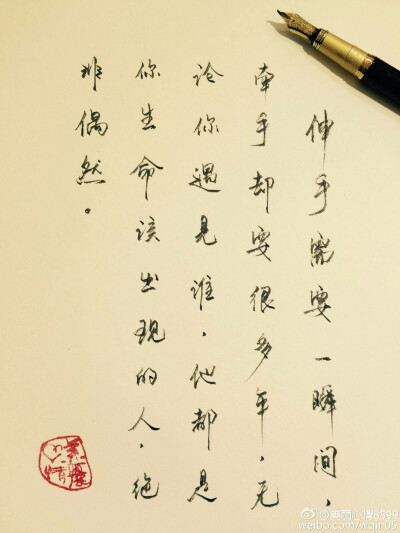 伸手需要一瞬间,
牵手却要很多年,无
论你遇见谁,他都是
你生命该出现的人,绝
非偶然。
weibo.com/wqin05